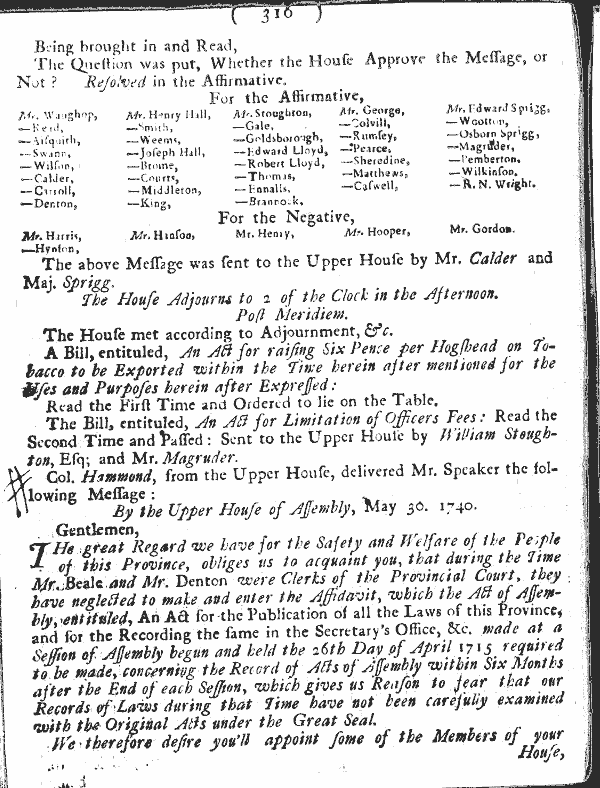 ( 316 )
Being brought in and Read,
The Queſtion was put, Whether the Houſe Approve the Meſſage, or
Not ? Reſolved in the Affirmative.
For the Affirmative,
Mr. Waughop, Mr. Henry Hall, Mr. Stoughton, Mr. George, Mr. Edward Sprigg,
—Read, —Smith, —Gale, —Colvill, —Wootton,
—Aiſquith, —Weems, —Goldsborough, —Rumſey, —Osborn Sprigg,
—Swann, —Joſeph Hall, —Edward Lloyd, —Pearce, —Magruder,
—Wilſon, —Brome, —Robert Lloyd, —Sheredine, —Pemberton,
—Calder, —Courts, —Thomas, —Matthews, —Wilkinſon,
—Carroll, —Middleton, —Ennalls, —Caſwell, —R. N. Wright.
—Denton, —King, —Brannock.
For the Negative,
Mr. Harris, Mr. Hanſon, Mr. Henry, Mr. Hooper, Mr. Gordon.
—Hynſon,
The above Meſſage was ſent to the Upper Houſe by Mr. Calder and
Maj. Sprigg.
The Houſe Adjourns to 2 of the Clock in the Afternoon.
Poſt Meridiem.
The Houſe met according to Adjournment, &c.
A Bill, entituled, An Act for raiſing Six Pence per Hogſhead on To-
bacco to be Exported within the Time herein after mentioned for the
Uſes and Purpoſes herein after Expreſſed :
Read the Firſt Time and Ordered to lie on the Table.
The Bill, entituled, An Act for Limitation of Officers Fees : Read the
Second Time and Paſſed : Sent to the Upper Houſe by William Stough-
ton, Eſq; and Mr. Magruder.
Col. Hammond, from the Upper Houſe, delivered Mr. Speaker the fol-
lowing Meſſage :
By the Upper Houſe of Aſſembly, May 30. 1740.
Gentlemen,
THe great Regard we have for the Safety and Welfare of the People
of this Province, obliges us to acquaint you, that during the Time
Mr. Beale and Mr. Denton were Clerks of the Provincial Court, they
have neglected to make and enter the Affidavit, which the Act of Aſſem-
bly, entituled, An Act for the Publication of all the Laws of this Province,
and for the Recording the ſame in the Secretary's Office, &c. made at a
Seſſion of Aſſembly begun and held the 26th Day of April 1715 required
to be made, concerning the Record of Acts of Aſſembly within Six Months
after the End of each Seſſion, which gives us Reaſon to fear that our
Records of Laws during that Time have not been carefully examined
with the Original Acts under the Great Seal.
We therefore deſire you'll appoint ſome of the Members of your
Houſe,